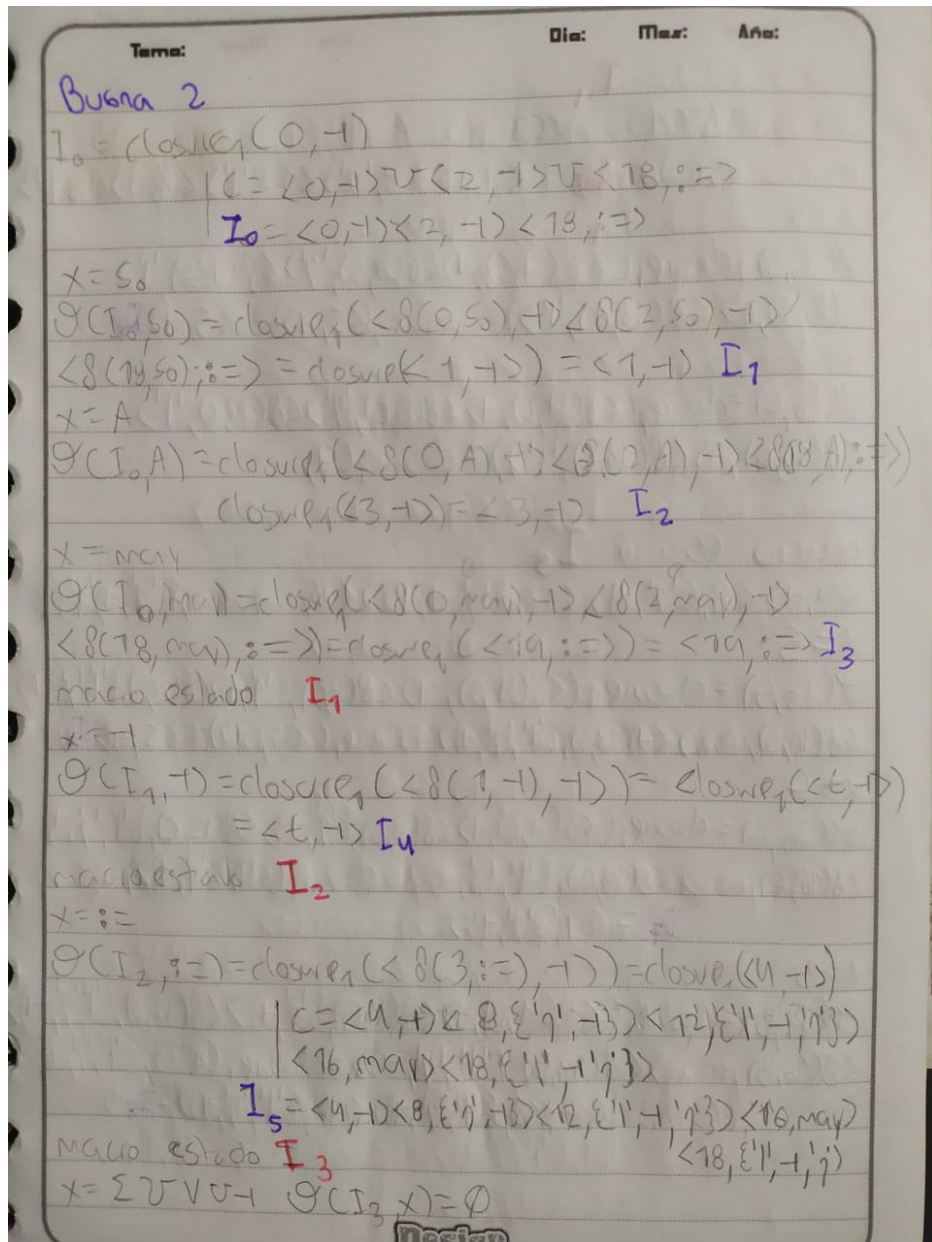 Tema: Dia: Mes: Año:
Buena 2
I₀ = closure₁(0,⊣)
C = <0,⊣> U <2,⊣> U <18,:=>
I₀ = <0,⊣><2,⊣><18,:=>
x = S₀
θ(I₀,S₀) = closure₁(<δ(0,S₀),⊣><δ(2,S₀),⊣>
<δ(18,S₀);:=> = closure(<1,⊣>) = <1,⊣> I₁
x = A
θ(I₀,A) = closure₁(<δ(0,A),⊣><δ(2,A),⊣><δ(18,A);:=>)
closure₁(<3,⊣>) = <3,⊣> I₂
x = may
θ(I₀,may) = closure₁(<δ(0,may),⊣><δ(2,may),⊣>
<δ(18,may),:=>) = closure₁(<19,:=>) = <19,:=> I₃
macro estado I₁
x = ⊣
θ(I₁,⊣) = closure₁(<δ(1,⊣),⊣>) = closure₁(<t,⊣>)
= <t,⊣> I₄
macro estado I₂
x = :=
θ(I₂,:=) = closure₁(<δ(3,:=),⊣>) = closure₁(<4,⊣>)
C = <4,⊣><8,{'|',⊣}><12,{'|',⊣,'|'}>
<16,may><18,{'|',⊣'|'}>
I₅ = <4,⊣><8,{'|',⊣}><12,{'|',⊣,'|'}><16,may>
<18,{'|',⊣,'|'>
macro estado I₃
x = Σ U V U ⊣ θ(I₃,x) = Ø
Design